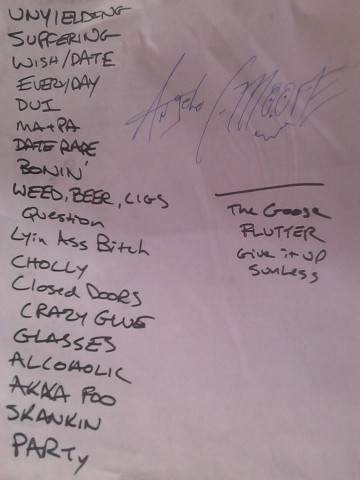 UNYIELDING
SUFFERING
WISH/DATE
EVERYDAY
DUI
MA+PA
DATE RAPE
BONIN'
WEED, BEER, CIGS
Question
Lyin Ass Bitch
CHOLLY
Closed DOORS
CRAZY GLUE
GLASSES
ALCOHOLIC
AKKA FOO
SKANKIN
PARTY
Angelo C. MOORE
The Goose
FLUTTER
Give it UP
Sunless